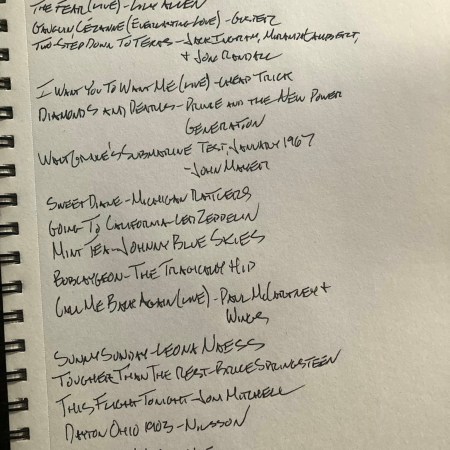 THE FEAR (LIVE) - LILY ALLEN
GAUGUIN, CÉZANNE (EVERLASTING LOVE) - GUSTER
TWO STEP DOWN TO TEXAS - JACK INGRAM, MIRANDA LAMBERT,
+ JON RANDALL
I WANT YOU TO WANT ME (LIVE) - CHEAP TRICK
DIAMONDS AND PEARLS - PRINCE AND THE NEW POWER
GENERATION
WALT GRACE'S SUBMARINE TEST, JANUARY 1967
- JOHN MAYER
SWEET DIANE - MICHIGAN RATTLERS
GOING TO CALIFORNIA - LED ZEPPELIN
MINT TEA - JOHNNY BLUE SKIES
BOBCAYGEON - THE TRAGICALLY HIP
CALL ME BACK AGAIN (LIVE) - PAUL MCCARTNEY +
WINGS
SUNNY SUNDAY - LEONA NAESS
TOUGHER THAN THE REST - BRUCE SPRINGSTEEN
THIS FLIGHT TONIGHT - JONI MITCHELL
DAYTON OHIO 1903 - NILSSON